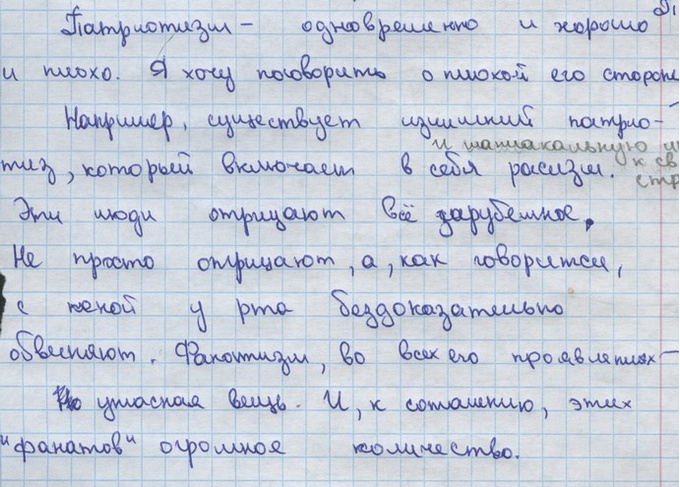 Патриотизм - одновременно и хорошо
и плохо. Я хочу поговорить о плохой его стороне
Например, существует излишний патрио-
и маниакальную
тиз, который включает в себя расизм. к св
стр
Эти люди отрицают всё зарубежное.
Не просто отрицают, а, как говорится,
с пеной у рта бездоказательно
обвиняют. Фанотизм, во всех его проявлениях -
ужасная вещь. И, к сожалению, этих
"фанатов" огромное количество.